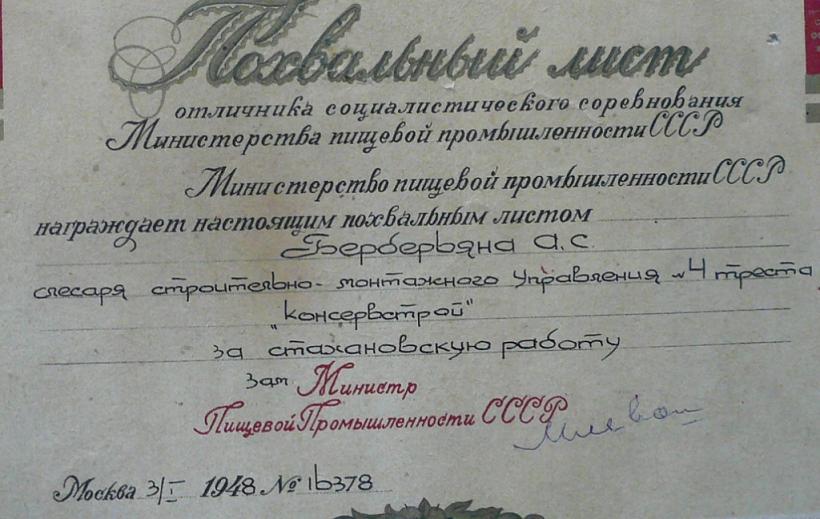 Похвальный лист
отличника социалистического соревнования
Министерства пищевой промышленности СССР
Министерство пищевой промышленности СССР
награждает настоящим похвальным листом
Берберьяна А.С.
слесаря строительно-монтажного Управления №4 треста
"Консервстрой"
за стахановскую работу
зам Министр
Пищевой Промышленности СССР
Москва 3/I 1948 № 16378